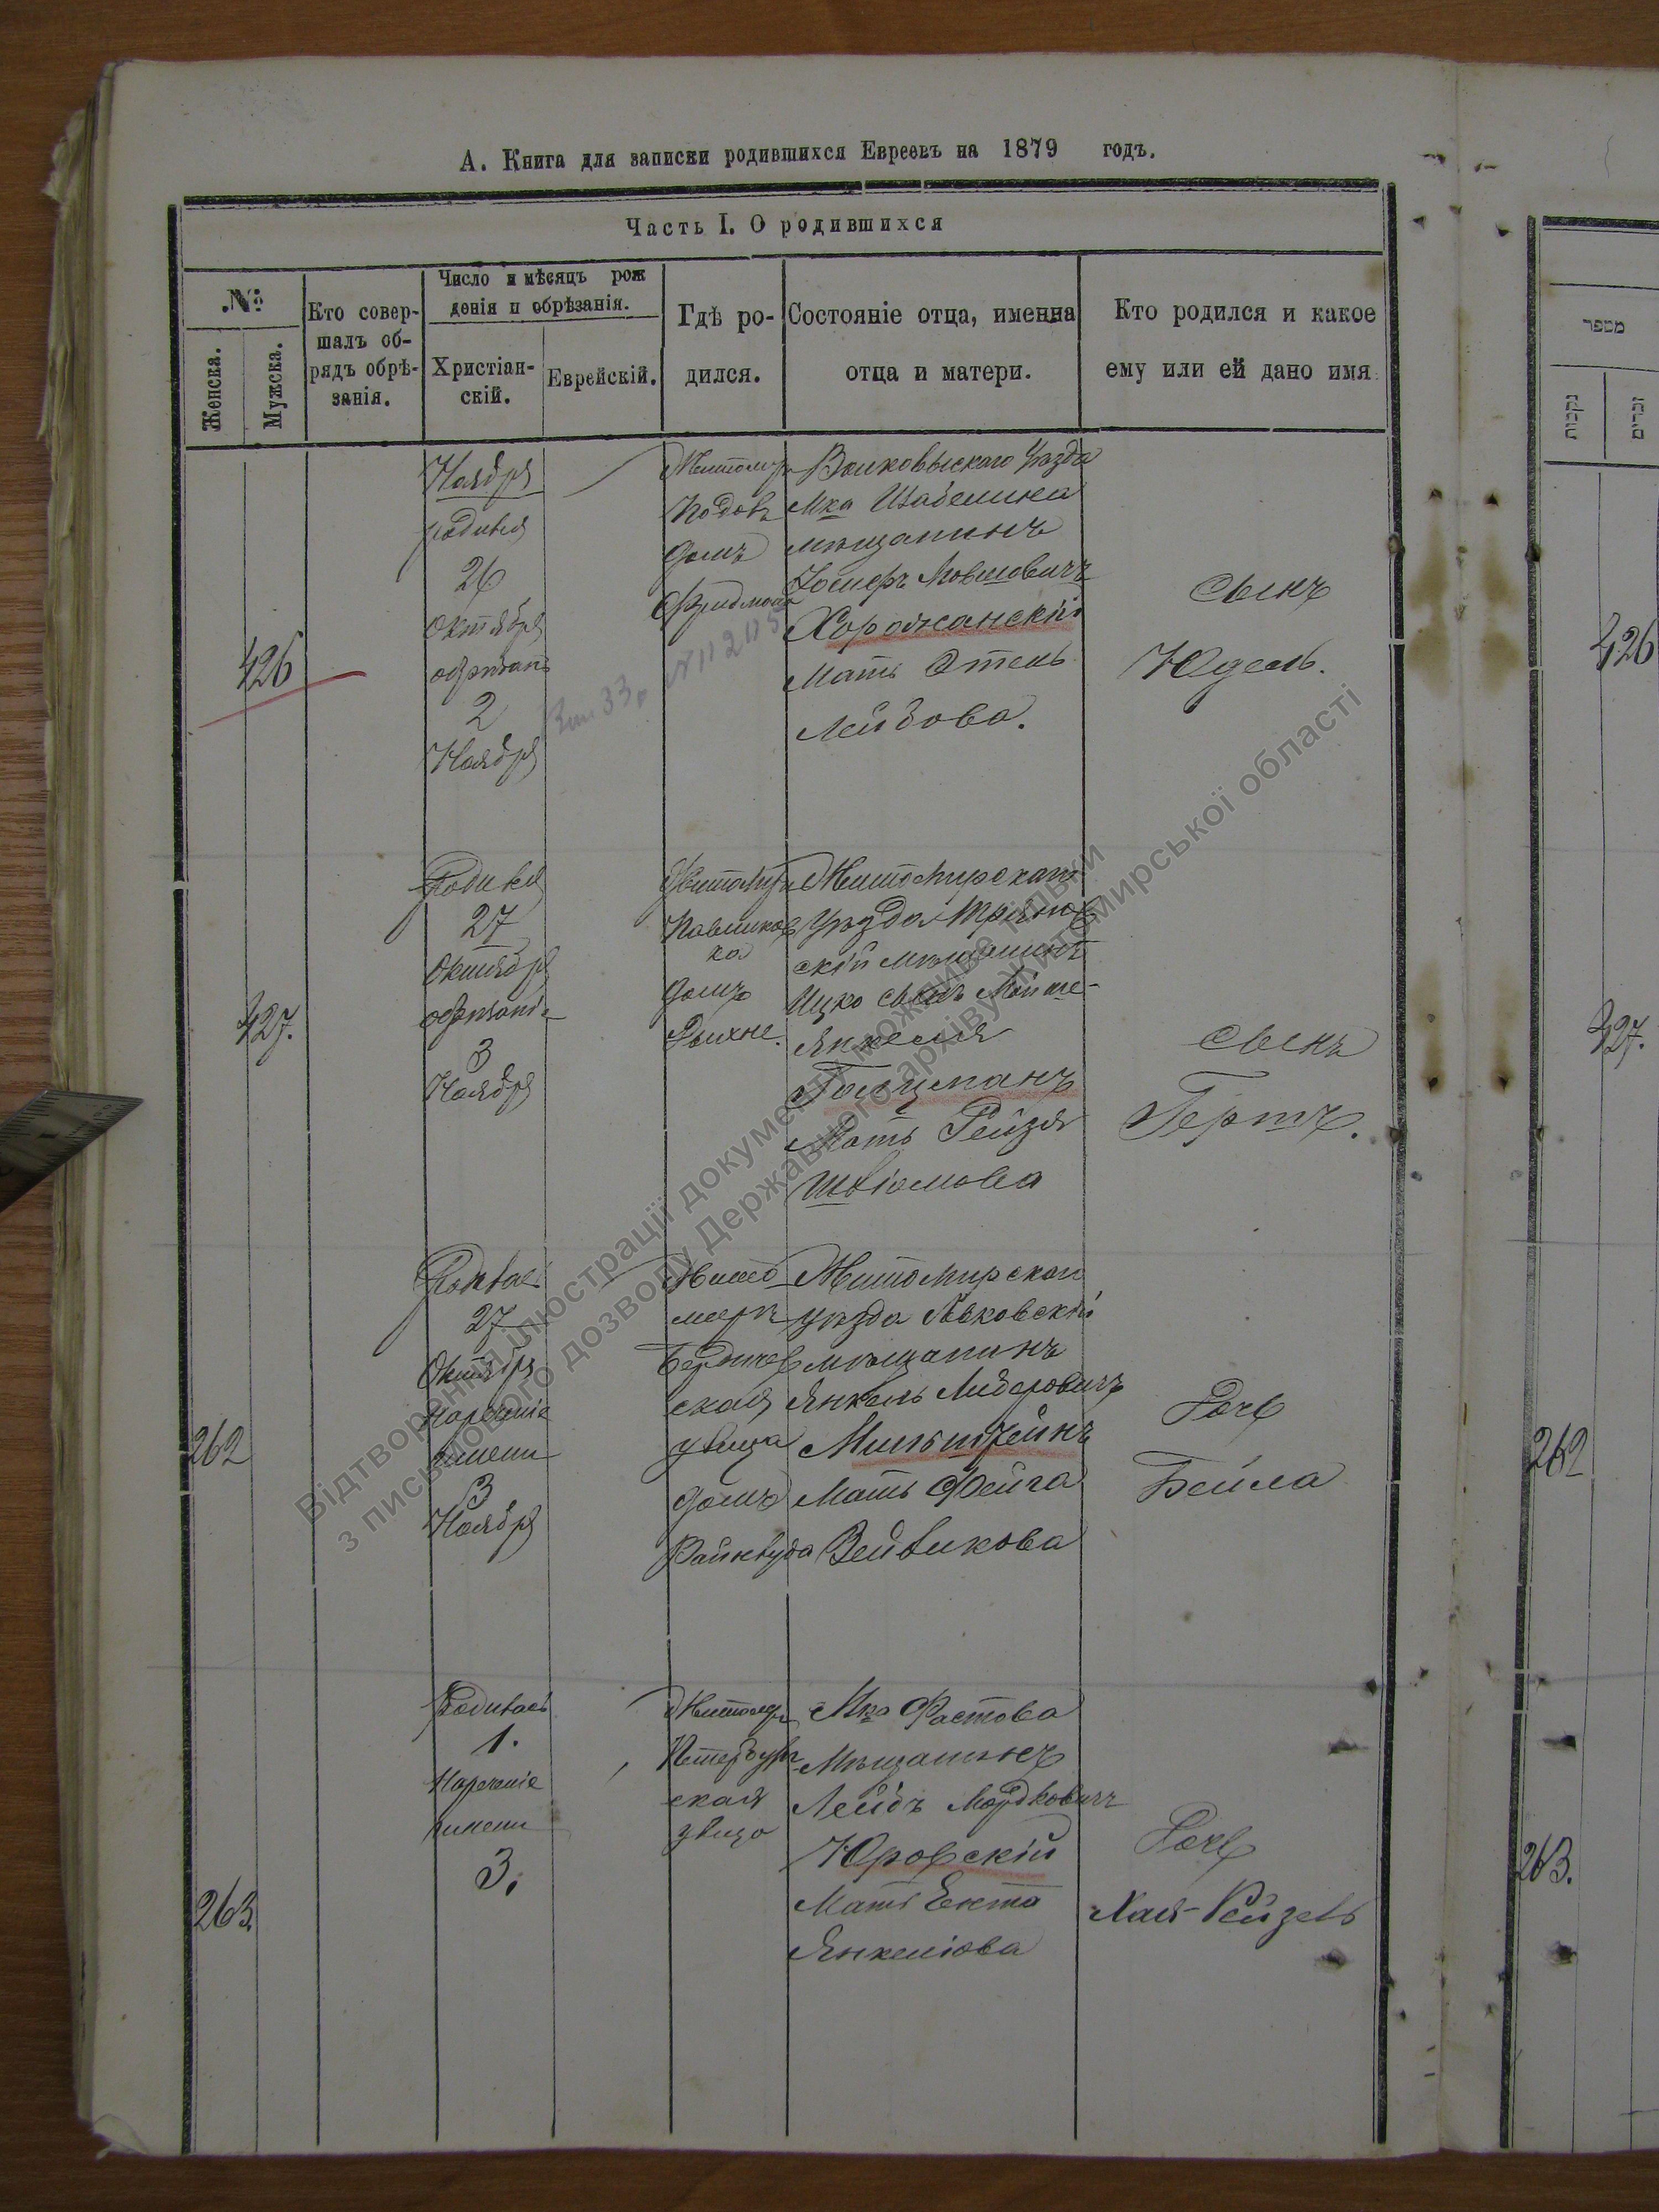 А. Книга для записки родившихся Евреевъ на 1879 годъ.
Часть I. О родившихся
№
Женска.
Мужска.
Кто совер-
шалъ об-
рядъ обрѣ-
занія.
Число и мѣсяцъ рож
денія и обрѣзанія.
Христіан-
скій.
Еврейскій.
Гдѣ ро-
дился.
Состояніе отца, именна
отца и матери.
Кто родился и какое
ему или ей дано имя
מספר
נקבות
זכרים
426
Ноября
родився
26
октября
обрѣзанъ
2
Ноября
Житомиръ
домъ
Фридмана
Волковыскаго уѣзда
Мка
мѣщанинъ
Іосифъ Мовшовичъ
Хорожанскій
Мать Этель
Лейбова.
сынъ
Юдель.
426
427.
Родився
27
Октября
обрѣзанъ
3
Ноября
Житомиръ
домъ
Житомирскаго
уѣзда
скій мѣщанинъ
Ицко сынъ Мойше-
Янкеля
Голцманъ
Мать Рейзя
сынъ
Герть.
427.
262
Родилась
27
Октября
Нареченіе
имени
3
Ноября
Жито
миръ
Бердичев
ская
улица
домъ
Житомирскаго
уѣзда
мѣщанинъ
Янкель
Мильштейнъ
Мать Фейга
Зейвикова
Дочь
Бейла
262
263.
Родилась
1.
Нареченіе
имени
3.
Житомиръ
Петербург
ская
улица
Мка Фастова
Мѣщанинъ
Лейбъ Мордковичъ
Юровскій
Мать Ента
Янкеліова
Дочь
Хая-Рейзель
263.
Відтворення ілюстрації документу можливе тільки
з письмового дозволу Державного архіву Житомирської області